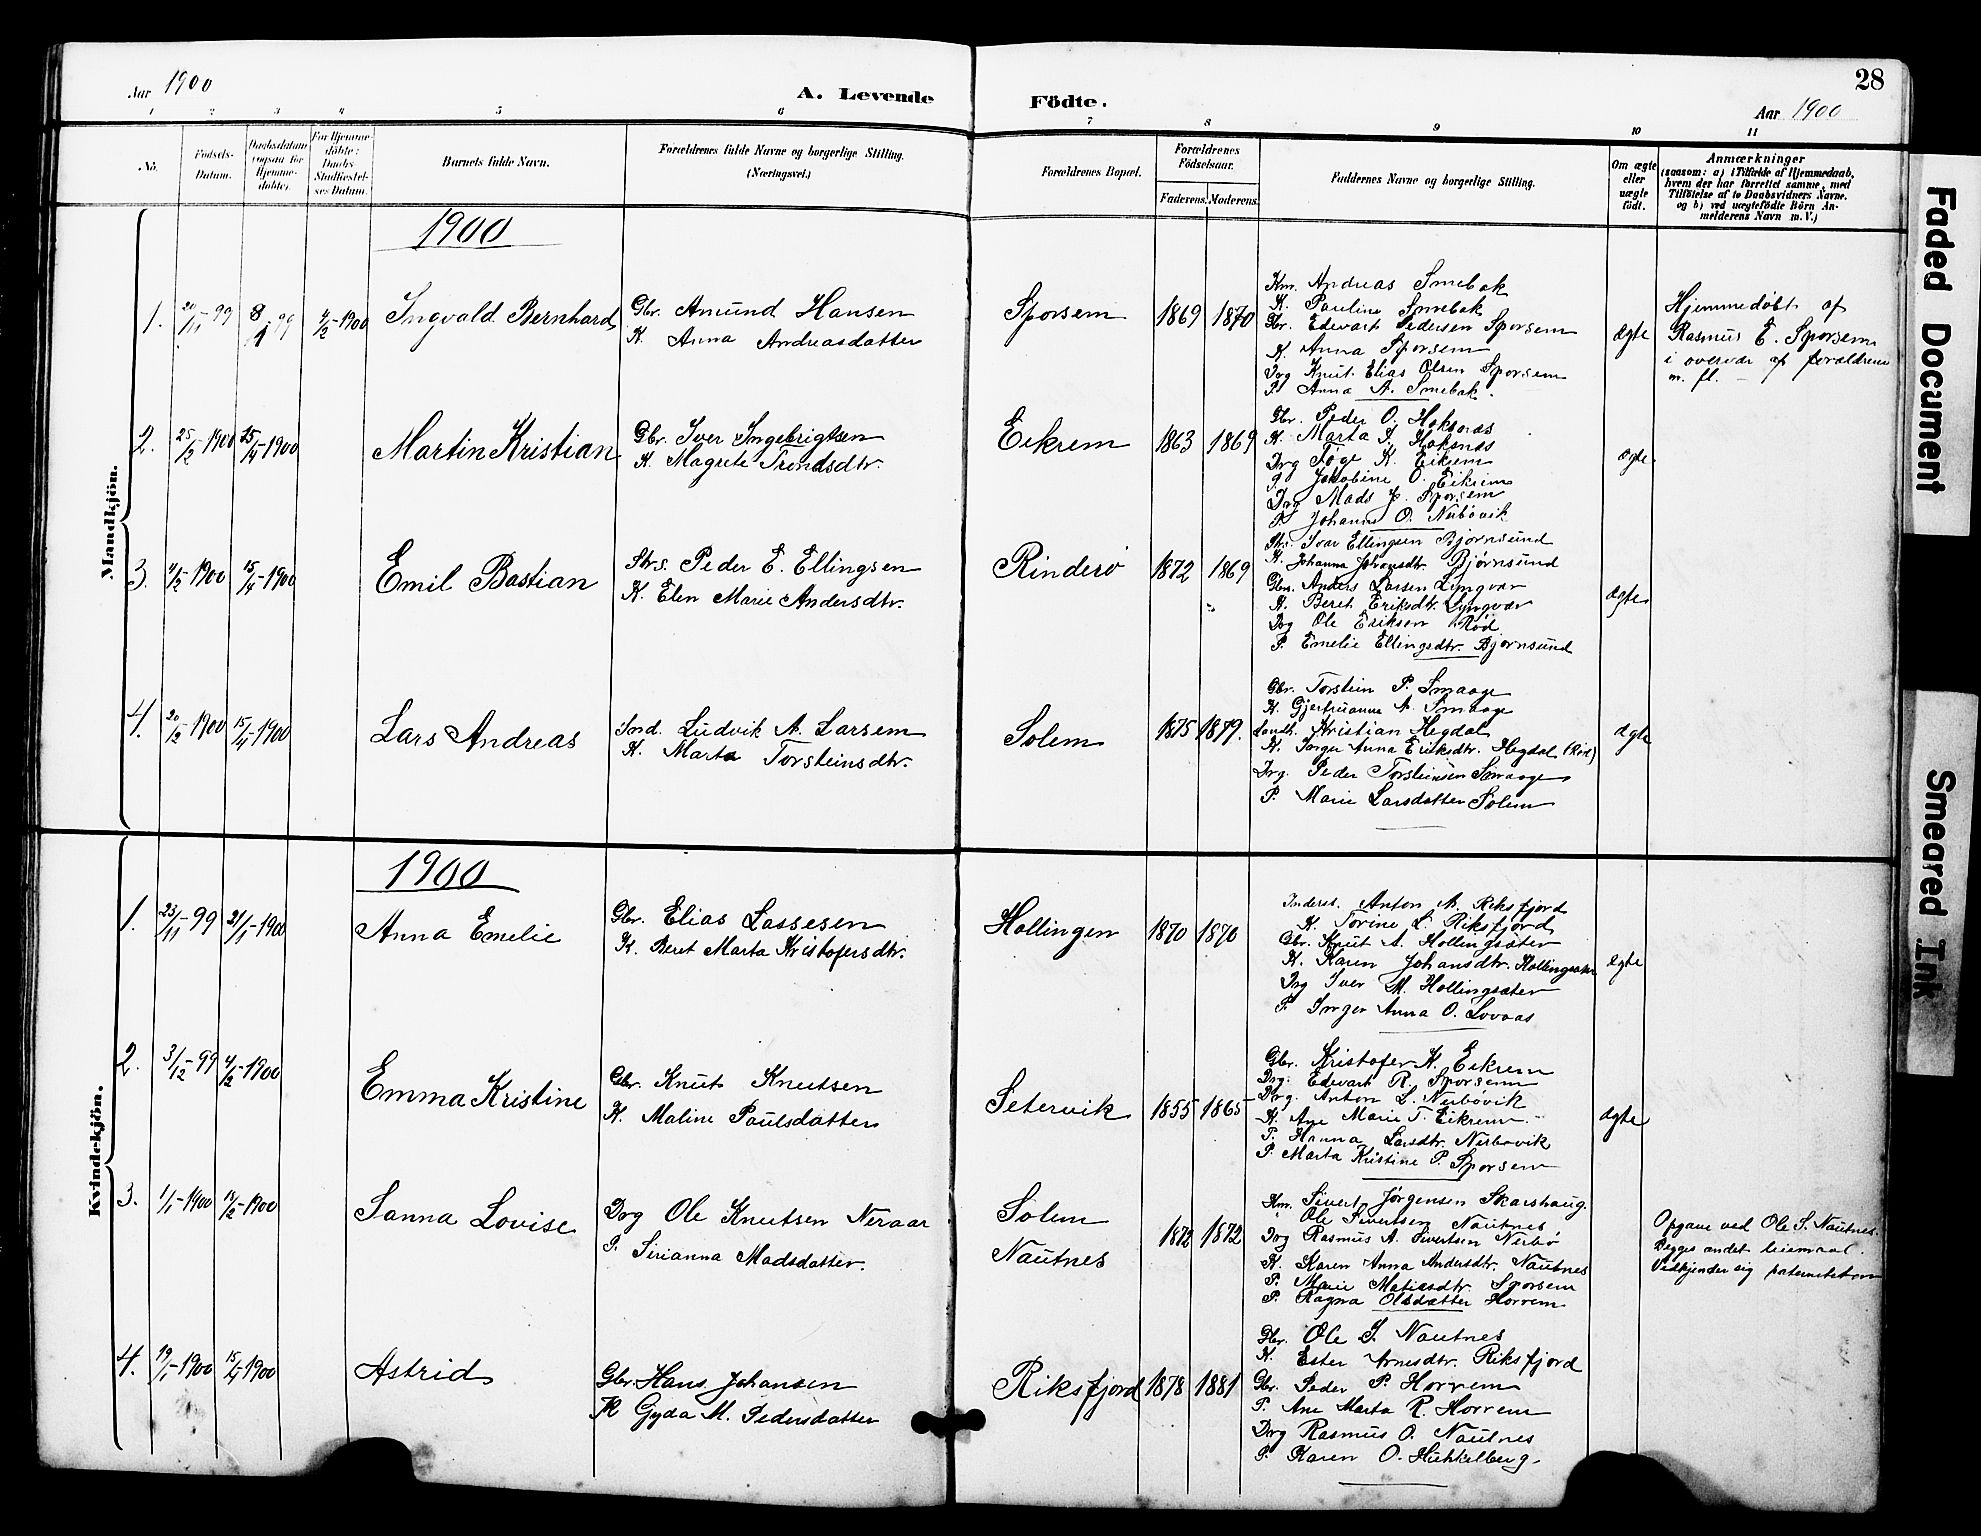 Aar 1900
A. Levende Födte.
28
Aar 1900
1 2 3 4 5 6 7 8 9 10 11
No.
Fødsels-
Datum.
Daabsdatum
(ogsaa for
Hjemme-
døbte).
For Hjemme-
døbte:
Daabs
Stadfæstel-
ses Datum.
Barnets fulde Navn.
Forældrenes fulde Navne og borgerlige Stilling.
(Næringsvei.)
Forældrenes Bopæl.
Forældrenes
Fødselsaar.
Faderens. Moderens.
Faddernes Navne og borgerlige Stilling.
Om ægte
eller
uægte
født.
Anmærkninger
(saasom: a) i Tilfælde af Hjemmedaab,
hvem der har forrettet samme, med
Tilføielse af to Daabsvidners Navne.
og b) ved uægtefødte Börn An-
melderens Navn m. V.)
Mandkjön.
1900
1. 20/11-99 8/1 99 4/2-1900 Ingvald Bernhard
Gbr. Amund Hansen
K. Anna Andreasdatter
Sporsem 1869 1870
Km. Andreas Smebak
K. Pauline Smebak
Gbr. Edevart Pedersen Sporsem
K. Anna Sporsem
Drg Knut Elias Olsen Sporsem
P. Anna A. Smebak.
ægte
Hjemmedøbt af
Rasmus E. Sporsem
i overvær af forældrene
m. fl. –
2. 25/2-1900 15/4-1900 Martin Kristian
Gbr. Iver Ingebrigtsen
K. Magrete Trondsdtr.
Eikrem 1863 1869
Gbr. Peder O. Hoksnæs
K. Marta I. Hoksnæs
Drg Tøge K. Eikrem
P. Jakobine O. Eikrem
Drg Mads J. Sporsem
P. Johanne O. Nerbøvik
ægte.
3. 4/2-1900 15/4-1900 Emil Bastian
Strs. Peder E. Ellingsen
K. Elen Marie Andersdtr.
Rinderø 1872 1869
Strs. Ivar Ellingsen Bjørnsund
K. Johanna Johansdtr. Bjørnsund
Gbr. Anders Larsen Lyngvær
K. Beret Eriksdtr. Lyngvær
Drg Ole Eriksen Rød
P. Emelie Ellingsdtr. Bjørnsund
ægte
4. 20/2-1900 15/4-1900 Lars Andreas
Ind. Ludvik A. Larsem
K. Marta Torsteinsdtr.
Solem 1875 1879.
Gbr. Torstein P. Smaage
K. Gjertruanna A. Smaage
Kristian Hegdal
K. Inger Anna Eriksdtr. Hegdal (Rød)
Drg. Peder Torsteinsen Smaage
P. Marie Larsdatter Solem
ægte
Kvindekjön.
1900
1. 23/11-99 21/1-1900 Anna Emelie
Gbr. Elias Lassesen
K. Beret Marta Kristofersdtr.
Hollingen 1870 1870
Inderst. Anton A. Riksfjord
K. Torine L. Riksfjord
Gbr. Knut A. Hollingsæter
K. Karen Johansdtr. Hollingsæter
Drg Iver M. Hollingsæter
P. Inger Anna O. Lovaas
ægte
2. 3/12-99 4/2-1900 Emma Kristine
Gbr. Knut Knutsen
K. Maline Paulsdatter
Setervik 1855 1865
Gbr. Kristofer K. Eikrem
Drg. Edevart R. Sporsem
Drg. Anton L. Nerbøvik
K. Ane Marie T. Eikrem
P. Hanna Larsdtr. Nerbøvik
P. Marta Kristine P. Sporsem
ægte
3. 1/1-1900 18/2-1900 Sanna Lovise
Drg Ole Knutsen Neraar
P. Sirianna Madsdatter.
Solem
Nautnes
1872 1872
Km. Sivert Jørgensen Skarshaug.
Ole Sivertsen Nautnes
Drg Rasmus A. Sivertsen Nerbø
K. Karen Anna Andersdtr. Nautnes
P. Marie Matiasdtr. Sporsem
P. Ragna Olsdatter Horrem
Opgave ved Ole S. Nautnes.
Begges andet leiemaal.
Vedkjender sig paterniteten
4. 19/1-1900 15/4-1900 Astrid
Gbr. Hans Johansen
K Gyda M. Pedersdatter
Riksfjord 1878 1881
Gbr. Ole S. Nautnes
K. Ester Arnesdtr. Riksfjord
Gbr. Peder P. Horrem
P. Ane Marta R. Horrem
Drg Rasmus O. Nautnes
P. Karen O.
Faded Document
Smeared Ink